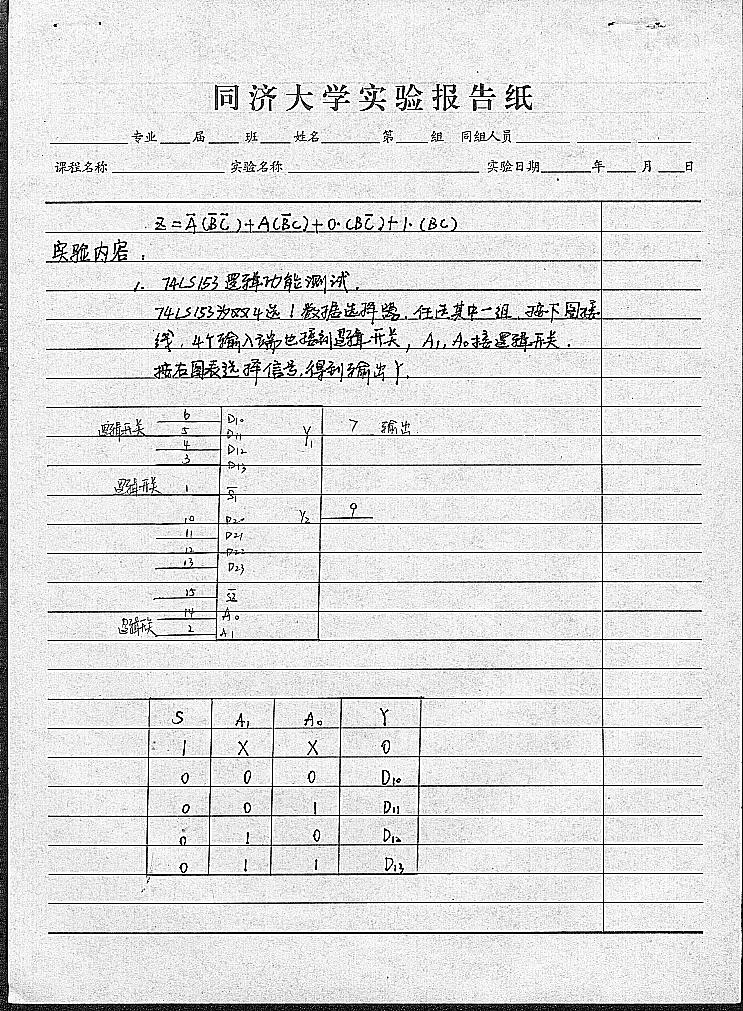 同济大学实验报告纸
专业 届 班 姓名 第 组 同组人员
课程名称 实验名称 实验日期 年 月 日
Z = A̅(B̅C̅)+A(B̅C)+0·(BC̅)+1·(BC)
实验内容：
1. 74LS153逻辑功能测试.
74LS153为双4选1数据选择器，任选其中一组，按下图接
线，4个输入端也接到逻辑开关，A1, A0接逻辑开关.
按右图表选择信号,得到输出Y.
6 D10
逻辑开关 5 D11 Y1 7 输出
4 D12
3 D13
逻辑开关 1 S̅1
10 D20 Y2 9
11 D21
12 D22
13 D23
15 S̅2
14 A0
逻辑开关 2 A1
S A1 A0 Y
1 X X 0
0 0 0 D10
0 0 1 D11
0 1 0 D12
0 1 1 D13